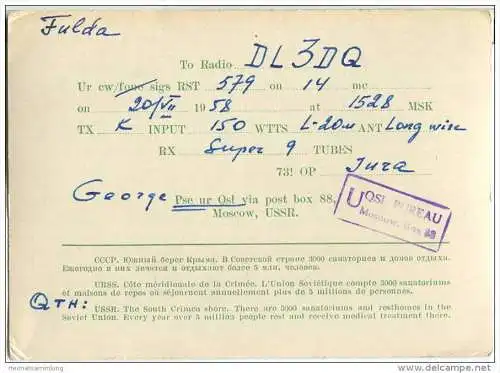 Fulda
To Radio DL3DQ
Ur cw/fone sigs RST 579 on 14 mc
on 20/VII 1958 at 1528 MSK
TX K INPUT 150 WTTS L-20м ANT Long wire
RX Super 9 TUBES
73! OP Jura
George Pse ur Qsl via post box 88,
Moscow, USSR.
U QSL BUREAU
Moscow, Box 88
СССР. Южный берег Крыма. В Советской стране 3000 санаториев и домов отдыха.
Ежегодно в них лечится и отдыхают более 5 млн. человек.
URSS. Côte méridionale de la Crimée. L'Union Soviétique compte 3000 sanatoriums
et maisons de repos où séjournent annuellement plus de 5 millions de personnes.
QTH:
USSR. The South Crimea shore. There are 3000 sanatoriums and resthomes in the
Soviet Union. Every year over 5 million people rest and receive medical treatment there.
Heimatsammlung
www.delcampe.net